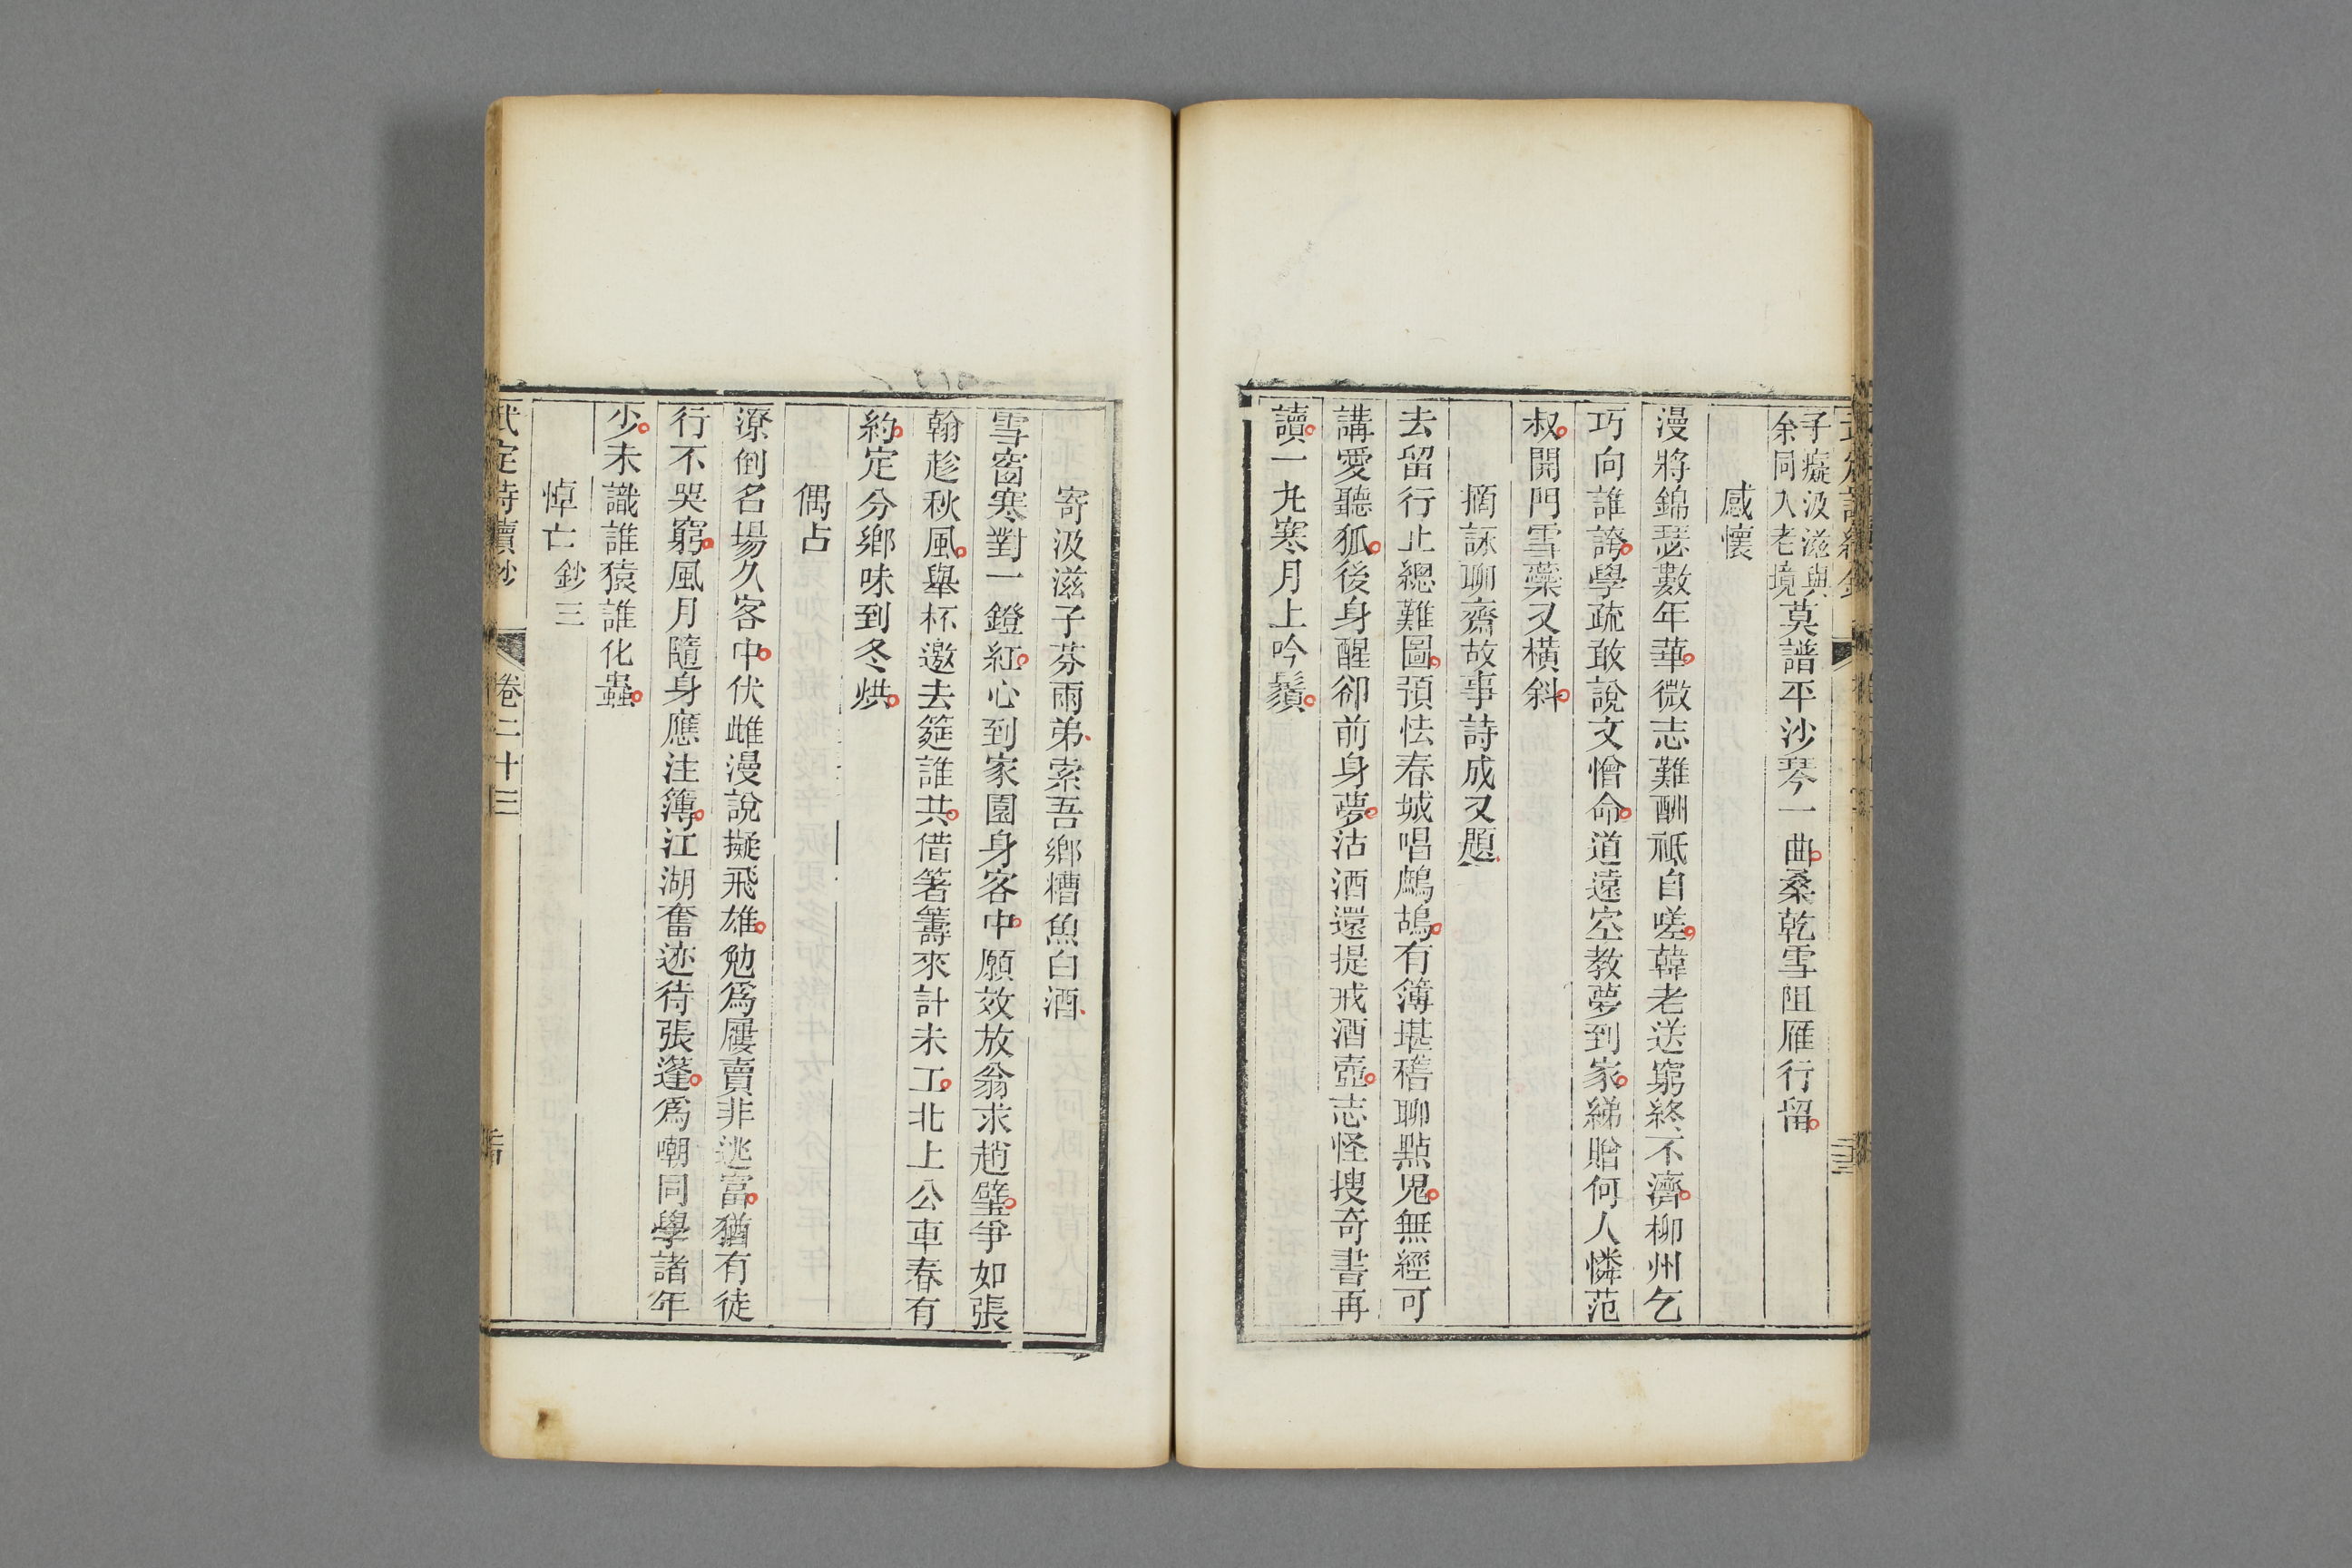 子癡汲滋與
余同入老境
莫譜平沙琴一曲桑乾雪阻雁行留
感懷
漫將錦瑟數年華微志難酬祗自嗟韓老送窮終不濟柳州乞
巧向誰誇學疏敢說文憎命道遠空教夢到家綈贈何人憐范
叔開門雪蘂又橫斜
摘詠聊齋故事詩成又題
去留行止總難圖預怯春城唱鷓鴣有簿堪稽聊點鬼無經可
講愛聽狐後身醒卻前身夢沽酒還提戒酒壺志怪搜奇書再
讀一丸寒月上吟鬚
寄汲滋子芬雨弟索吾鄉糟魚白酒
雪窗寒對一鐙紅心到家園身客中願效放翁求趙璧爭如張
翰趁秋風舉杯邀去筵誰共借箸籌來計未工北上公車春有
約定分鄉味到冬烘
偶占
潦倒名場久客中伏雌漫說擬飛雄勉爲屨賣非逃富猶有徒
行不哭窮風月隨身應注簿江湖奮迹待張蓬爲嘲同學諸年
少未識誰猿誰化蟲
悼亡 鈔三
武定詩續鈔 卷二十三